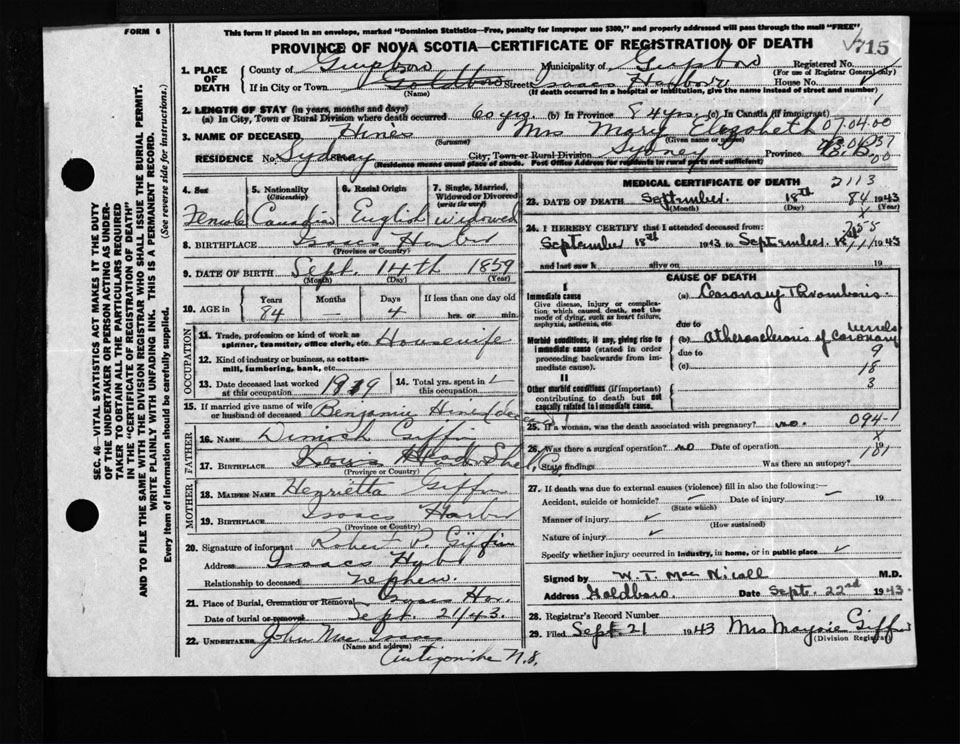 FORM 6
This form if placed in an envelope, marked "Dominion Statistics—Free, penalty for improper use $300," and properly addressed will pass through the mail "FREE"
PROVINCE OF NOVA SCOTIA—CERTIFICATE OF REGISTRATION OF DEATH
715
1. PLACE OF DEATH
County of Guysboro Municipality of Guysboro Registered No.
(For use of Registrar General only)
If in City or Town Goldboro Street Isaacs Harbour House No.
(Name) (If death occurred in a hospital or institution, give the name instead of street and number)
2. LENGTH OF STAY (in years, months and days)
(a) In City, Town or Rural Division where death occurred 60 yrs. (b) In Province 84 yrs. (c) In Canada (if immigrant)
3. NAME OF DECEASED Hines Mrs Mary Elizabeth 07.04.00
(Surname) (Given name or names)
RESIDENCE No. Sydney City, Town or Rural Division Sydney Province C.B.
(Residence means usual place of abode. Post Office Address for residents in rural parts not sufficient)
4. Sex
Female
5. Nationality (Citizenship)
Canadian
6. Racial Origin
English
7. Single, Married, Widowed or Divorced (write the word)
Widowed
8. BIRTHPLACE Isaacs Harbor
(Province or Country)
9. DATE OF BIRTH Sept. 14th 1859
(Month) (Day) (Year)
10. AGE in Years Months Days If less than one day old
84 — 4 hrs. or min.
OCCUPATION
11. Trade, profession or kind of work as spinner, teamster, office clerk, etc. Housewife
12. Kind of industry or business, as cotton-mill, lumbering, bank, etc.
13. Date deceased last worked at this occupation 1939
14. Total yrs. spent in this occupation
15. If married give name of wife or husband of deceased Benjamin Hines (dec)
FATHER
16. NAME Dimock Giffin
17. BIRTHPLACE Louis Head Shel. Co.
(Province or Country)
MOTHER
18. MAIDEN NAME Henrietta Giffin
19. BIRTHPLACE Isaacs Harbor
(Province or Country)
20. Signature of informant Robert P. Giffin
Address Isaacs Hybr
Relationship to deceased nephew.
21. Place of Burial, Cremation or Removal Isaacs Hr.
Date of burial or removal Sept. 21/43.
22. UNDERTAKER John Mac Isaac
(Name and address)
Antigonishe N.S.
MEDICAL CERTIFICATE OF DEATH 2113
23. DATE OF DEATH September 18th 84 1943
(Month) (Day) (Year)
24. I HEREBY CERTIFY that I attended deceased from:
September 18th 1943 to September 18 1943
and last saw h alive on 19
CAUSE OF DEATH
I
Immediate cause
Give disease, injury or complication which caused death, not the mode of dying, such as heart failure, asphyxia, asthenia, etc.
(a) Coronary Thrombosis.
due to
Morbid conditions, if any, giving rise to immediate cause (stated in order proceeding backwards from immediate cause)
(b) Atherosclerosis of Coronary vessels
due to 9
(c) 18
II
3
Other morbid conditions (if important) contributing to death but not causally related to immediate cause
25. If a woman, was the death associated with pregnancy? no. 094-1
26. Was there a surgical operation? no Date of operation 19
State findings Was there an autopsy? 181
27. If death was due to external causes (violence) fill in also the following:—
Accident, suicide or homicide? Date of injury 19
(State which)
Manner of injury
(How sustained)
Nature of injury
Specify whether injury occurred in industry, in home, or in public place
Signed by W. T. Mac Nicoll M.D.
Address Goldboro. Date Sept. 22nd 1943.
28. Registrar's Record Number
29. Filed Sept. 21 1943 Mrs Marjorie Giffin
(Division Registrar)
SEC. 46—VITAL STATISTICS ACT MAKES IT THE DUTY
OF THE UNDERTAKER OR PERSON ACTING AS UNDER-
TAKER TO OBTAIN ALL THE PARTICULARS REQUIRED
IN THE "CERTIFICATE OF REGISTRATION OF DEATH"
AND TO FILE THE SAME WITH THE DIVISION REGISTRAR WHO SHALL ISSUE THE BURIAL PERMIT.
WRITE PLAINLY WITH UNFADING INK. THIS IS A PERMANENT RECORD.
Every item of information should be carefully supplied. (See reverse side for instructions.)